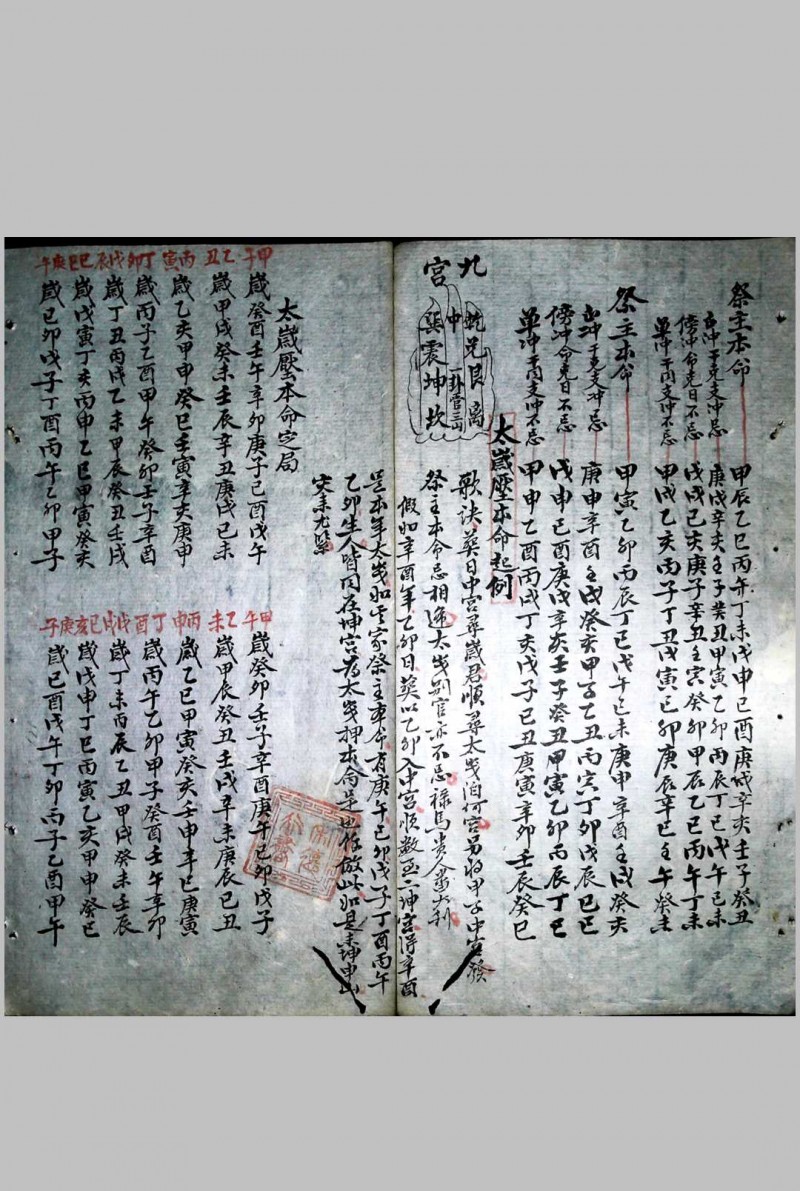 祭主本命 甲辰乙巳丙午丁未戊申己酉庚戌辛亥壬子癸丑
正冲干克支冲忌 庚戌辛亥壬子癸丑甲寅乙卯丙辰丁巳戊午己未
傍冲命克日不忌 戊戌己亥庚子辛丑壬寅癸卯甲辰乙巳丙午丁未
單冲干同支冲不忌 甲戌乙亥丙子丁丑戊寅己卯庚辰辛巳壬午癸未
祭主本命 甲寅乙卯丙辰丁巳戊午己未庚申辛酉壬戌癸亥
正冲干克支冲忌 庚申辛酉壬戌癸亥甲子乙丑丙寅丁卯戊辰己巳
傍冲命克日不忌 戊申己酉庚戌辛亥壬子癸丑甲寅乙卯丙辰丁巳
單冲干同支冲不忌 甲申乙酉丙戌丁亥戊子己丑庚寅辛卯壬辰癸巳
太歲壓本命起例
九宮
乾兑艮離
中
一卦管三山
巽震坤坎
歌訣 葬日中宮尋歲君順尋太歲泊何宮另將甲子中宮發
祭主本命忌相逢太歲别宮亦不忌禄馬貴人最為利
假如辛酉年乙卯日葬以乙卯入中宮順数至坤宮得辛酉
是本年太歲如其家祭主本命有庚午己卯戊子丁酉丙午
乙卯生人皆同在坤宮為太歲押本命是也餘倣此如是未坤申山
灾未尤緊
太歲壓本命定局
甲子 歲癸酉壬午辛卯庚子己酉戊午
乙丑 歲甲戌癸未壬辰辛丑庚戌己未
丙寅 歲乙亥甲申癸巳壬寅辛亥庚申
丁卯 歲丙子乙酉甲午癸卯壬子辛酉
戊辰 歲丁丑丙戌乙未甲辰癸丑壬戌
己巳 歲戊寅丁亥丙申乙巳甲寅癸亥
庚午 歲己卯戊子丁酉丙午乙卯甲子
甲午 歲癸卯壬子辛酉庚午己卯戊子
乙未 歲甲辰癸丑壬戌辛未庚辰己丑
丙申 歲乙巳甲寅癸亥壬申辛巳庚寅
丁酉 歲丙午乙卯甲子癸酉壬午辛卯
戊戌 歲丁未丙辰乙丑甲戌癸未壬辰
己亥 歲戊申丁巳丙寅乙亥甲申癸巳
庚子 歲己酉戊午丁卯丙子乙酉甲午